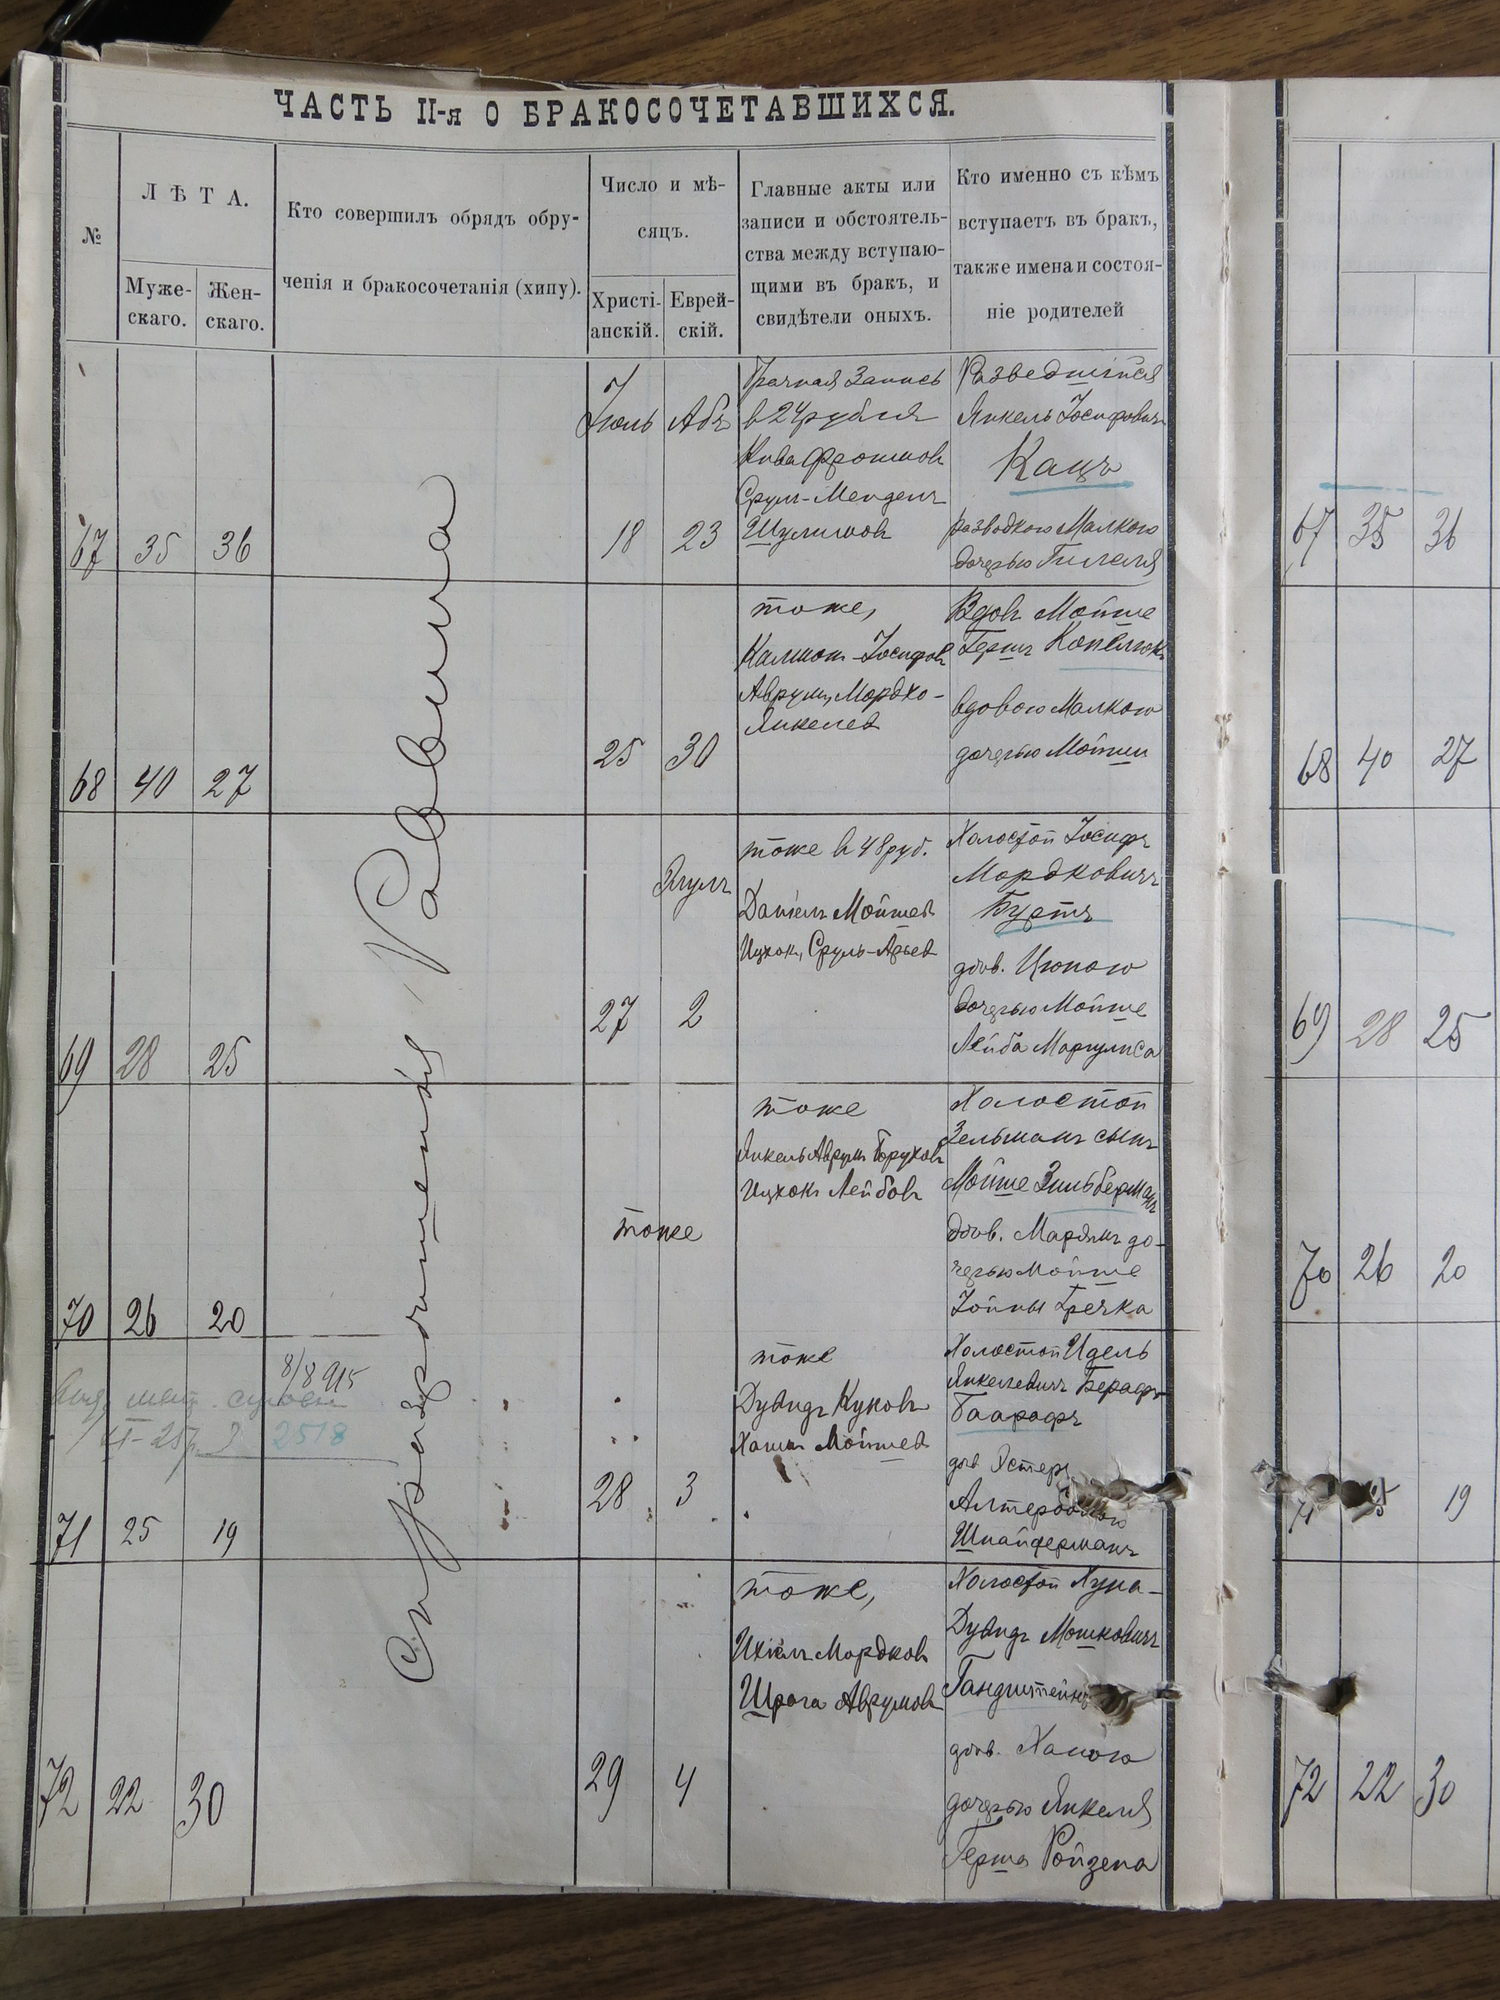 ЧАСТЬ II-я О БРАКОСОЧЕТАВШИХСЯ.
№
ЛѢТА.
Муже-
скаго.
Жен-
скаго.
Кто совершилъ обрядъ обру-
ченія и бракосочетанія (хипу).
Число и мѣ-
сяцъ.
Христі-
анскій.
Еврей-
скій.
Главные акты или
записи и обстоятель-
ства между вступаю-
щими въ бракъ, и
свидѣтели оныхъ.
Кто именно съ кѣмъ
вступаетъ въ бракъ,
также имена и состоя-
ніе родителей
67 35 36
Іюль Абъ
18 23
Брачная Запись
в 24 рубля
Кива Фроимов
Срул-Мендель
Шулимов
Разведшійся
Янкель Іосифович
Кацъ
разводкою Малкою
дочерью Гилеля
68 40 27
25 30
тоже,
Калмон Іосифов
Аврум, Мордко-
Янкелев
Вдов Мойше
Герш Копелюк
вдовою Малкою
дочерью Мойши
69 28 25
Элул
27 2
тоже в 48 руб.
Даніел Мойшев
Ицхок, Сруль-Арьев
Холостой Іосиф
Мордкович
Буртъ
дѣв. Ципою
дочерью Мойше
Лейба Маргулиса
70 26 20
тоже
тоже
Янкель Аврум Борухов
Ицхок Лейбов
Холостой
Зельман сын
Мойше Зильберман
дѣв. Марьям до-
черью Мойше
Іойны Гречка
8/8 915
2518
71 25 19
28 3
тоже
Дувид Куков
Хаим Мойшев
Холостой Идель
Янкелевич Бераф
Баараф
дѣв Эстер
Шнайдерман
72 22 30
29 4
тоже,
Ихіел Мордков
Шрага Аврумов
Холостой Хуна-
Дувид Мошкович
Гандштейн
дѣв. Ханою
дочерью Янкеля
Герша Ройзена
Раввина
67 35 36
68 40 27
69 28 25
70 26 20
19
72 22 30